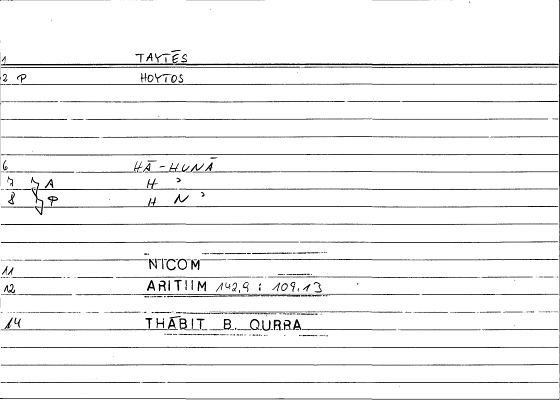 1 TAYTĒS
2 P HOYTOS
6 HĀ-HUNĀ
7 A H ʾ
8 P H N ʾ
11 NICOM
12 ARITIIM 142,9 : 109,13
14 THĀBIT B. QURRA